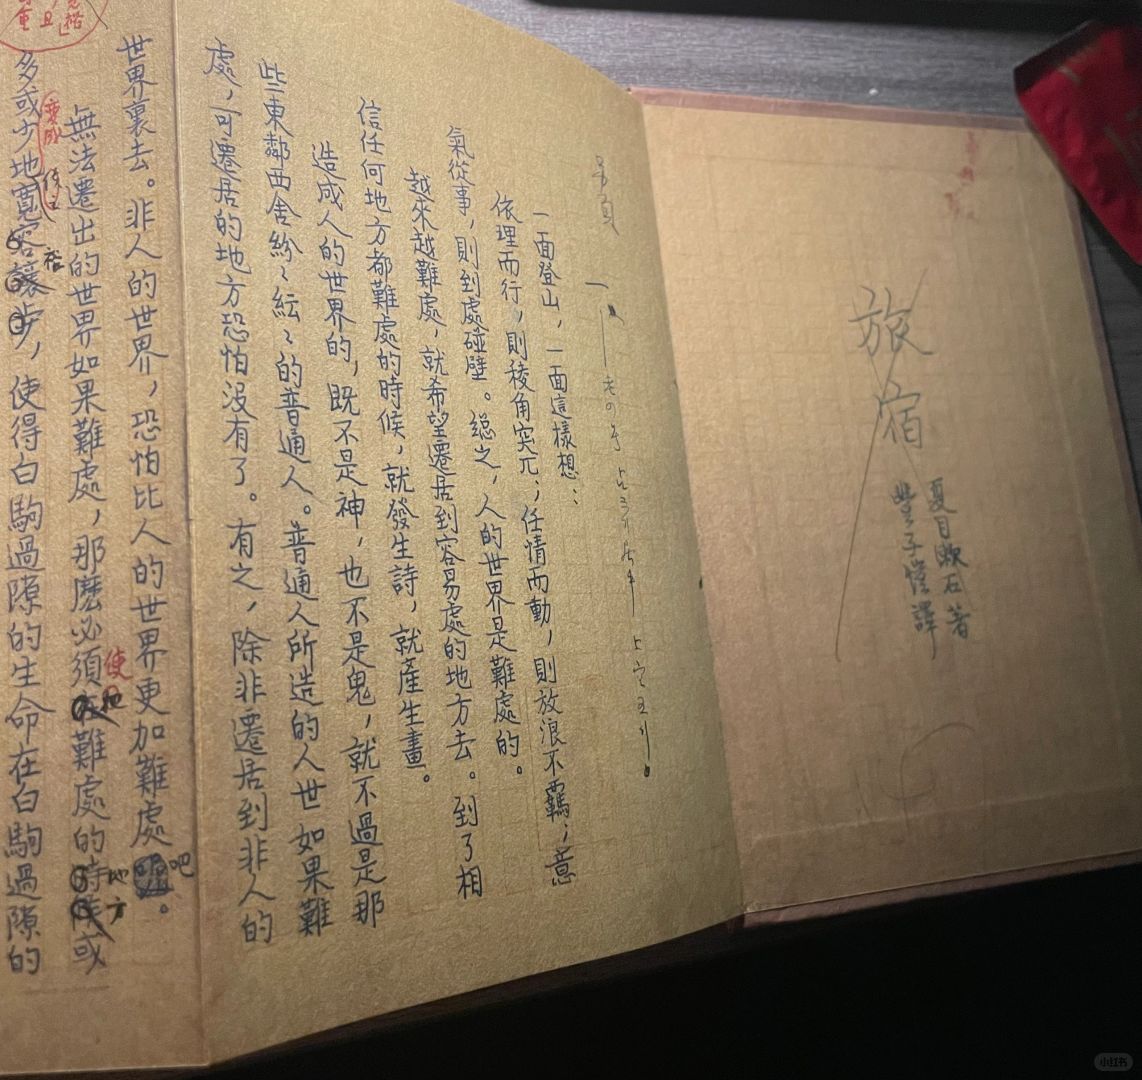 旅宿
夏目漱石著
豐子愷譯
另頁
一
一面登山,一面這樣想:
依理而行,則稜角突兀;任情而動,則放浪不羈;意
氣從事,則到處碰壁。總之,人的世界是難處的。
越來越難處,就希望遷居到容易處的地方去。到了相
信任何地方都難處的時候,就發生詩,就產生畫。
造成人的世界的,既不是神,也不是鬼,就不過是那
些東鄰西舍紛々紜々的普通人。普通人所造的人世如果難
處,可遷居的地方恐怕沒有了。有之,除非遷居到非人的
世界裏去。非人的世界,恐怕比人的世界更加難處吧。
無法遷出的世界如果難處,那麽必須在難處的時候或
使
地方
多或少地寬容讓步,使得白駒過隙的生命在白駒過隙的
變成
裕
小红书